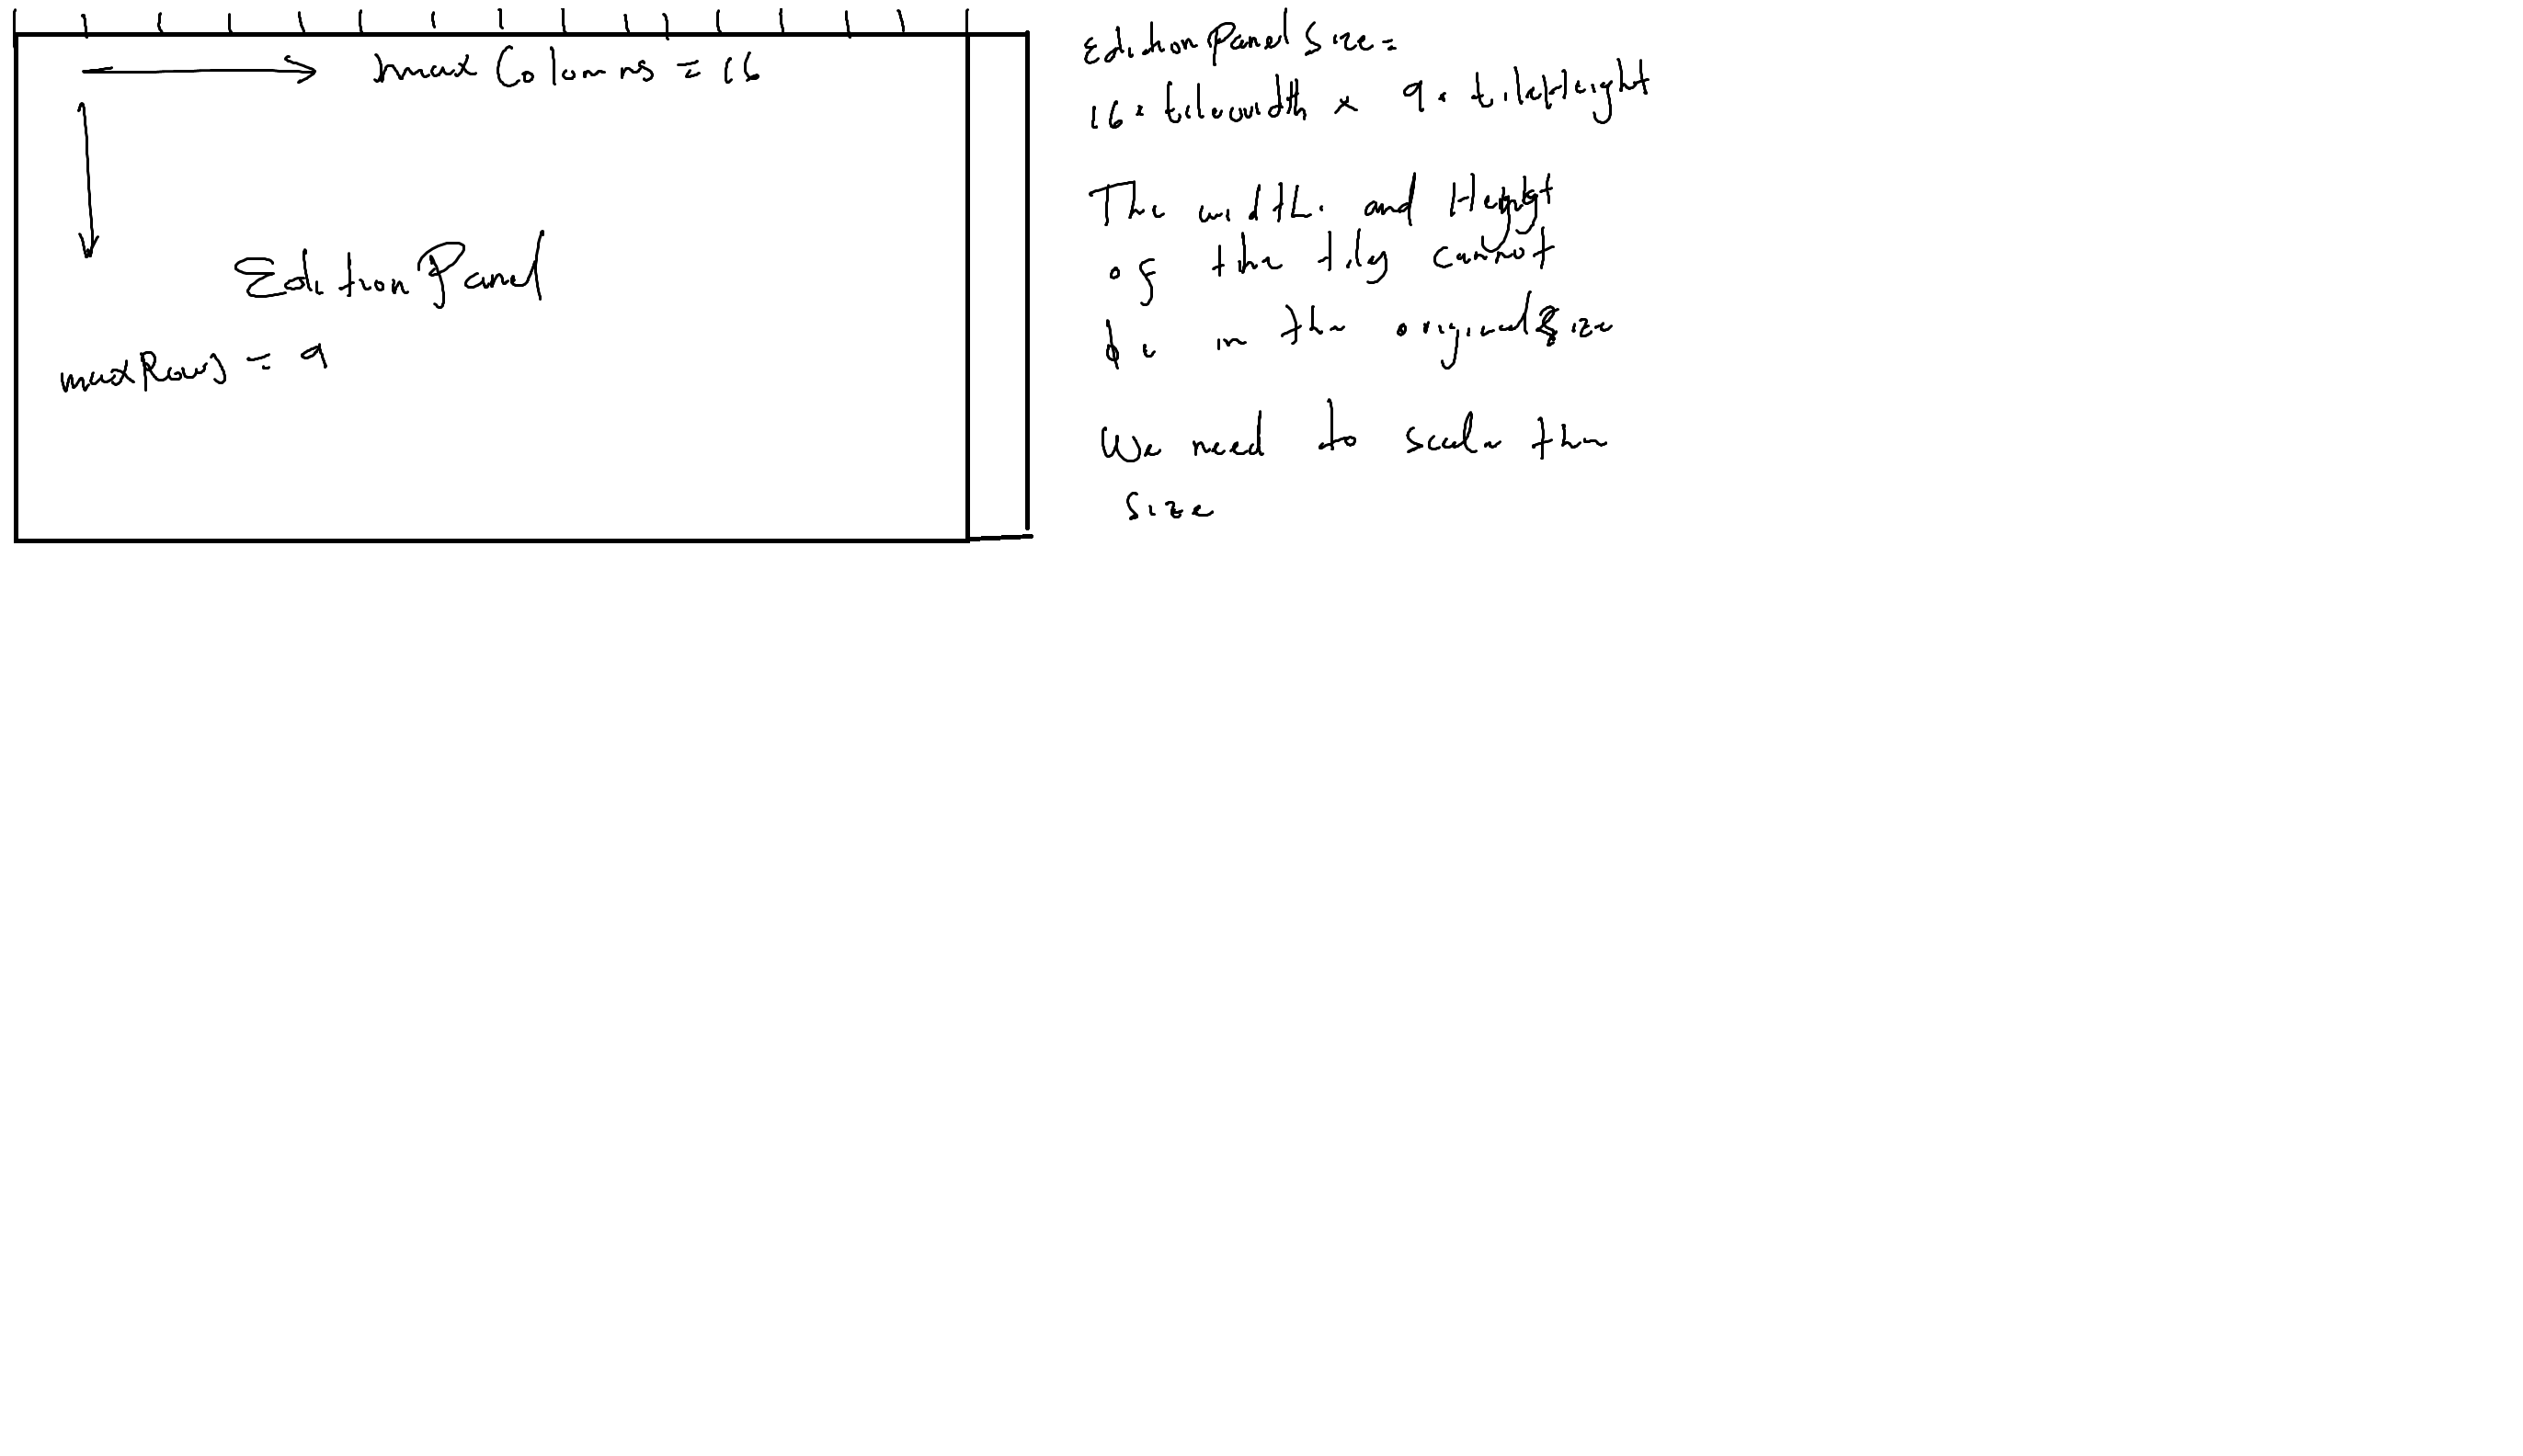 maxColumns = 16
EditionPanel
maxRows = 9
EditionPanelSize =
16 * tilewidth x 9 * tileHeight
The width and Height
of the tiles cannot
be in the original size
We need to scale the
size